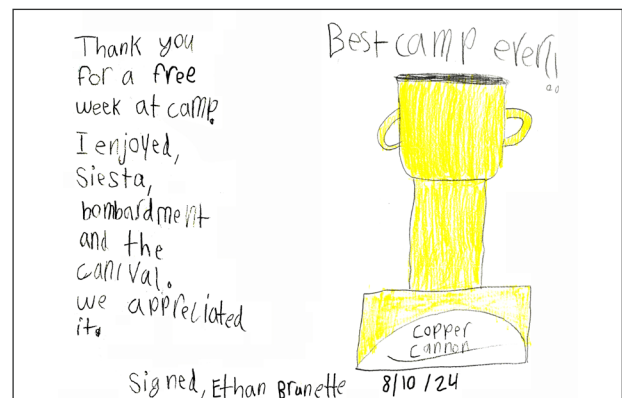 Thank you
for a free
week at camp.
I enjoyed,
Siesta,
bombardment
and the
canival.
we appreciated
it.
Best camp ever!!
copper
cannon
Signed, Ethan Brunette 8/10/24